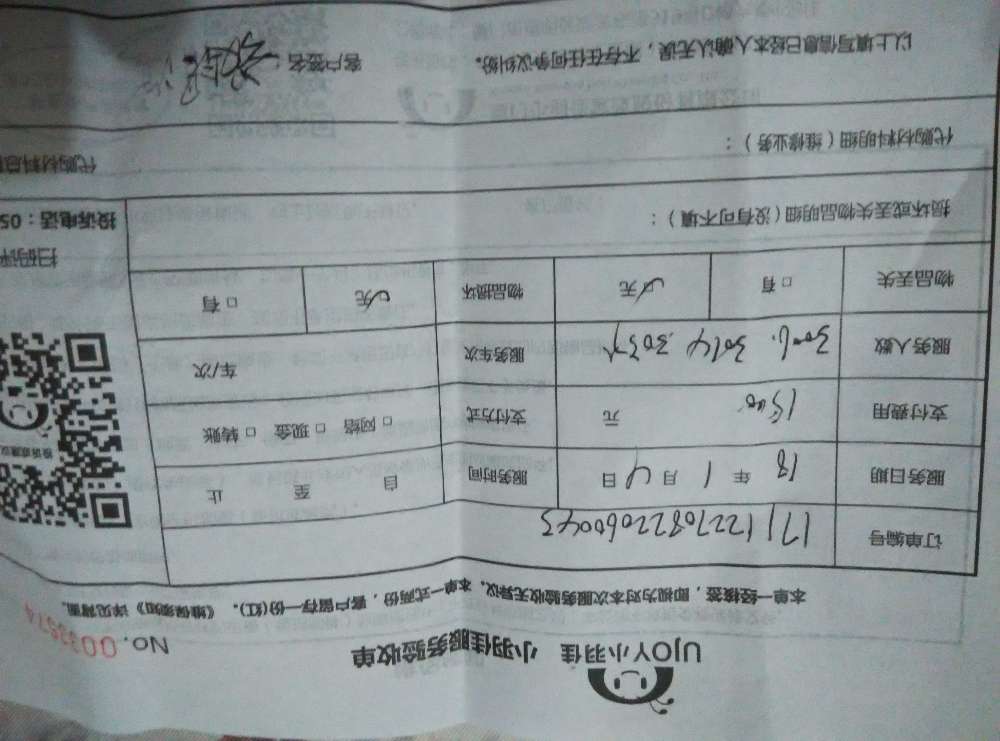 UJOY小羽佳 小羽佳服务验收单
No. 0033574
本单一经接签，即视为对本次服务验收无异议。本单一式两份，客户留存一份(红)。《维保须知》详见背面。
订单编号 171122708220600453
服务日期 18 年 1 月 4 日 服务时间 自 至 止
支付费用 1500 元 支付方式 □ 网络 □ 现金 □ 转账
服务人数 服务车次 车/次
物品丢失 □ 有 ☑无 物品损坏 ☑无 □ 有
损坏或丢失物品明细（没有可不填）：
代购材料明细（维修业务）：
代购材料总
以上填写信息已经本人确认无误，不存在任何争议纠纷。 客户签名
投诉或建议
扫码评
投诉电话：05